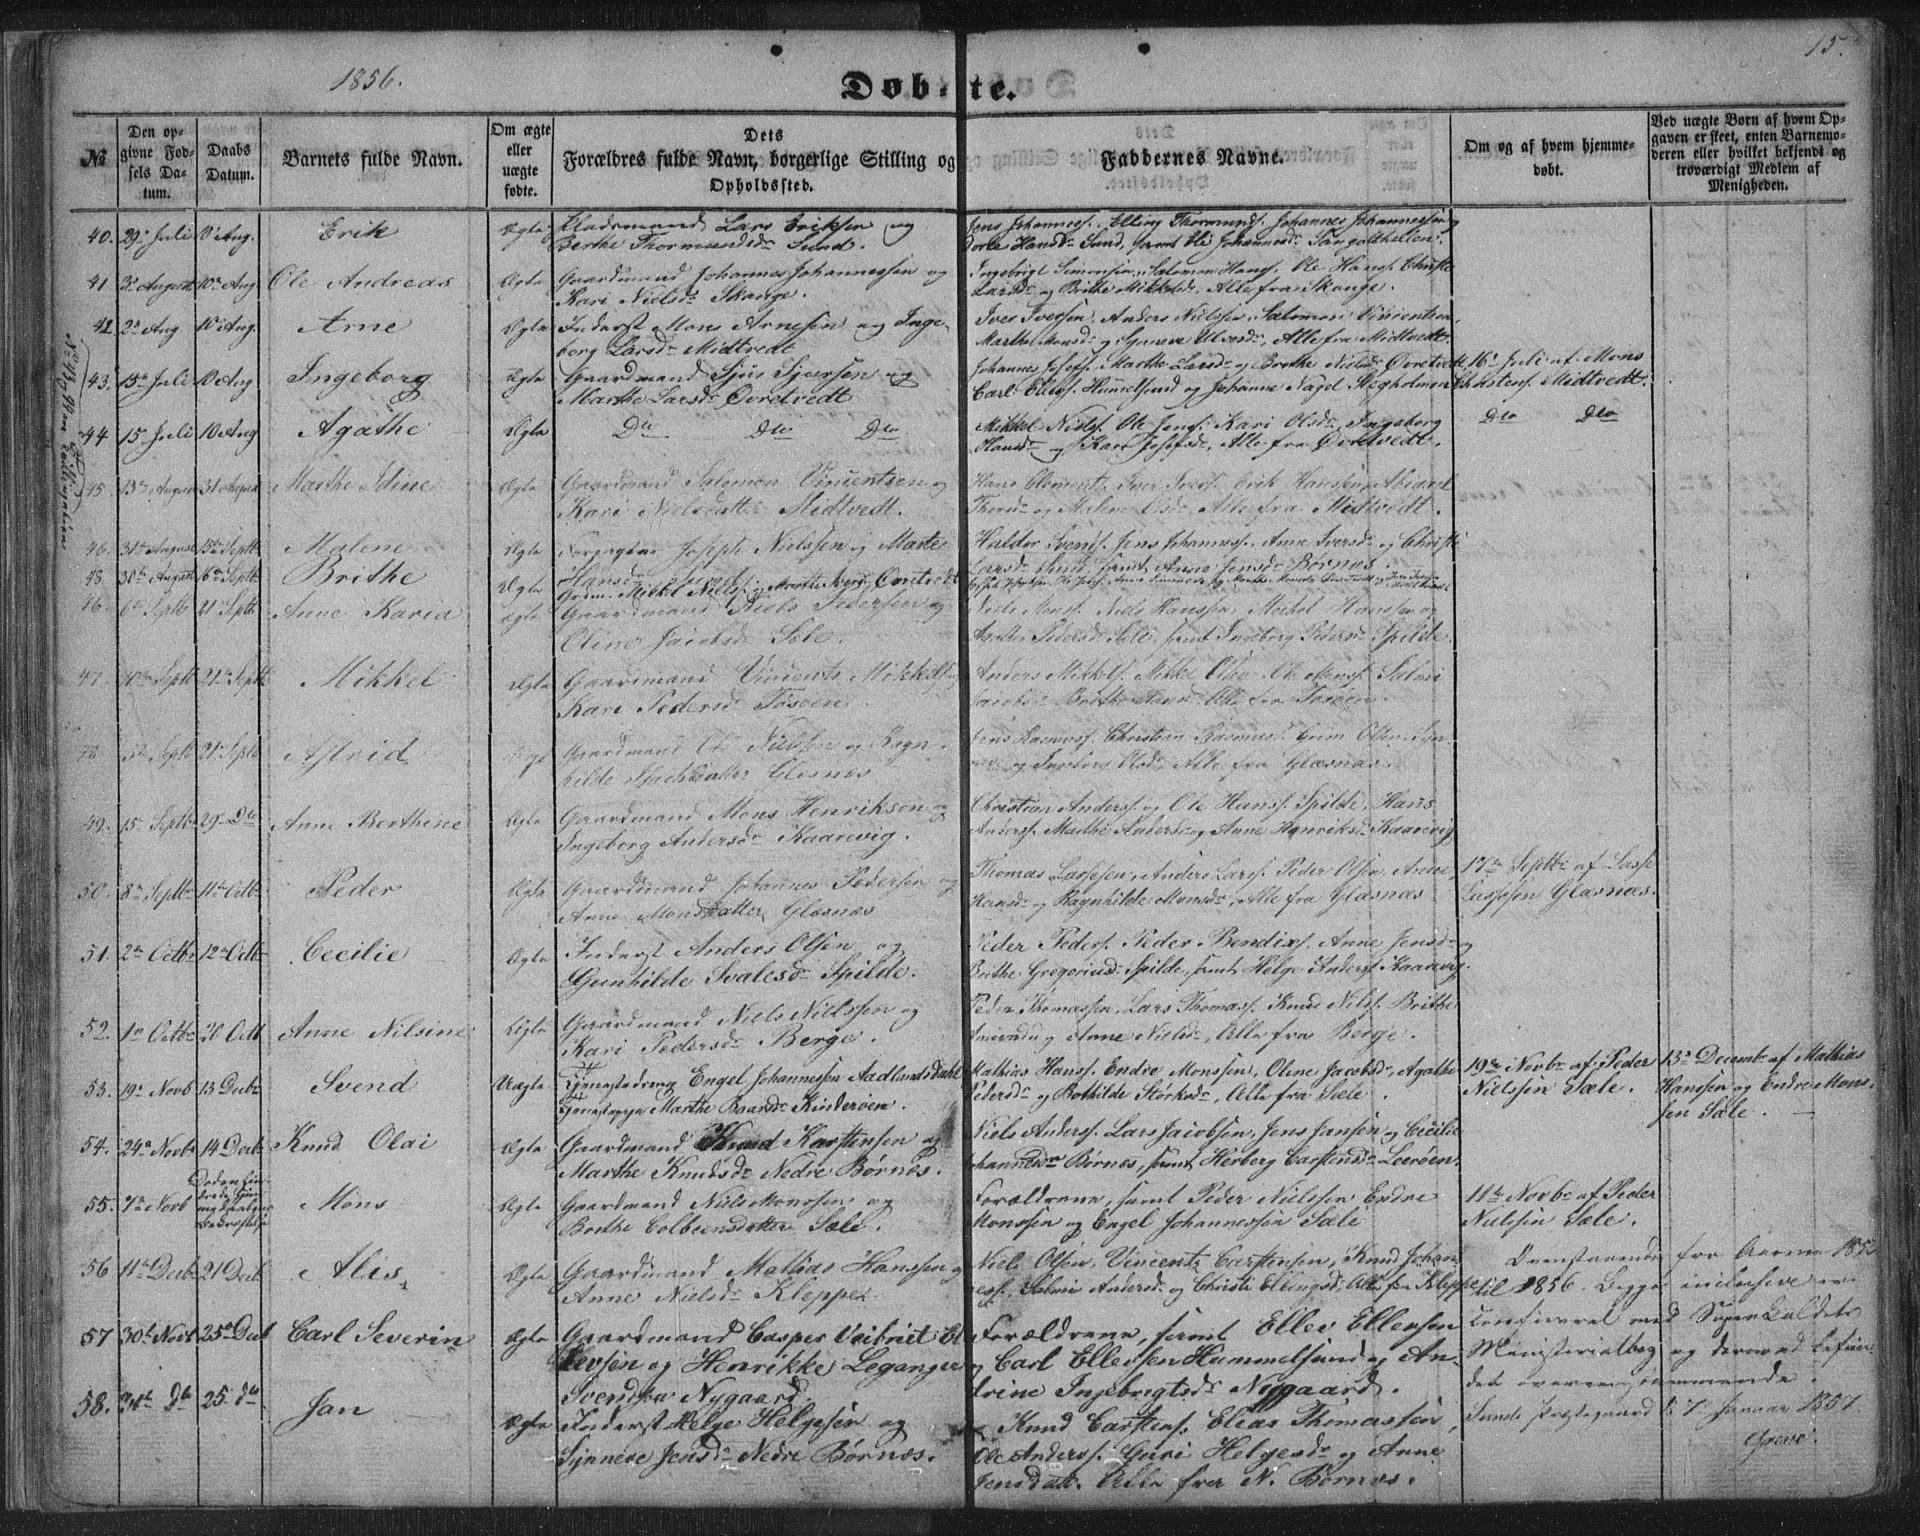 1856.
Døbte.
15.
№
Den opgivne Fødsels Datum.
Daabs Datum.
Barnets fulde Navn.
Om ægte eller uægte fødte.
Dets Forældres fulde Navn, borgerlige Stilling og Opholdssted.
Faddernes Navne.
Om og af hvem hjemmedøbt.
Ved uægte Børn af hvem Opgaven er skeet, enten Barnemoderen eller hvilket bekjendt og troværdigt Medlem af Menigheden.
40. 29 Juli Aug. Erik Ægte Lars Eriksen og
Berthe Thormundsdr Sund.
Jens Johanness. Elling Thormunds. Johannes Johannessen og
Dorte Hansdr Sund, samt Eli Johannesdr
41 3 August 10 Aug Ole Andreas Ægte Gaardmand Johannes Johannessen og
Kari Nielsdr Skauge.
Ingebrigt Simonsen, Salomon Hans. Ole Hans. Christi
Larsdr og Brithe Mikkelsdr, Alle fra Skauge.
42 2 Aug 10 Aug. Arne Ægte Inderst Mons Arnesen og Inge-
borg Larsdr Midtvedt
Iver Iversen, Anders Nielsen, Salomon Vincentsen,
Marthe Monsdr og Synneve Alle fra Midtvedt.
43. 15 Juli 10 Aug Ingeborg Ægte Gaardmand Sjur Sjursen og
Marthe Larsdr Øvretvedt
Johannes Josefs. Marthe Larsdr og Brithe Nielsdr Øvretvedt
Carl Ellevs. Hummelsund og Johanne Nagel Stegholmen
16 Juli af Mons
Christens. Midtvedt.
44 15 Juli 10 Aug Agathe Ægte Do Do Do
Mikkel Niels. Ole Jens. Kari Olsdr, Ingeborg
Hansdr og Kari Josefsdr, Alle fra Øvretvedt.
Do Do
45. 13 August 31 August Marthe Idine Ægte Gaardmand Salomon Vincentsen og
Kari Nielsdatter Midtvedt.
Hans Clements. Iver Ivers. Erik Hanssen, Abigael
Thorsdr og Malene Olsdr, Alle fra Midtvedt.
46. 31 August Septb Malene Ægte Joseph Nielsen og Marte
Hansdr
Haldor Svends. Jens Johanness. Anne Iversdr og Christi
Larsdr Sund samt Anne Jensdr Børnæs.
48. 30 August Septb Brithe Ægte Gaardm. Mikkel Niels. og Marthe Øvretvedt
46. 6 Septb 21 Septb Anne Karia Ægte Gaardmand Niels Pedersen og
Oline Jacobsdr Sele.
Niels Mons. Niels Hanssen, Mikkel Hanssen og
Pedersdr Sele, samt Ingeborg Pedersdr Spilde.
47. Septb 21 Septb Mikkel Ægte Gaardmand Vincents Mikkels. og
Kari Pedersdr Tosøen.
Anders Mikkels. Mikkel Olsen, Ole Mons. Salmi
Jacobsdr Brithe Alle fra Tosøen.
48. Septb 21 Septb Astrid Ægte Gaardmand Ole Nielsen og Ragn-
hilde Glesnæs
Jens Rasmuss. Christian Rasmus. Olsen, Syn-
neve og Ingeborg Olsdr, Alle fra Glæsnæs.
49. 15 Septb 29 Do Anne Berthine Ægte Gaardmand Mons Henriksen og
Ingeborg Andersdr Kaarevig.
Christian Anders. og Ole Hans. Spilde, Hans
Anders. Marthe Andersdr og Anne Henriksdr Kaarevig
50. 8 Septb 11 Octb Peder Ægte Gaardmand Johannes Pedersen og
Anne Monsdatter Glæsnæs
Thomas Larssen, Anders Lars. Peder Olsen, Anne
Hansdr og Ragnhilde Monsdr, Alle fra Glæsnæs
17 Septbr af Lasse
Lassesen Glæsnæs.
51. 2 Octb 12 Octb Cecilie Ægte Inderst Anders Olsen og
Gunhilde Svalesdr Spilde.
Peder Peders. Peder Bendix. Anne Jensdr og
Brithe Gregoriusdr Spilde, samt Helge Anders. Kaarevig.
52. 1 Octb 20 Octb Anne Nilsine Ægte Gaardmand Niels Nielssen og
Kari Pedersdr Berge.
Peder Thomassen, Lars Thomass. Knud Niels. Brithe
og Anne Nielsdr, Alle fra Berge.
53. 19 Novb 13 Decbr Svend Uægte Tjenestedreng Engel Johannessen Aadland
Tjenestepige Marthe Baardsdr Kinderøen.
Mathias Hans. Endre Monssen, Oline Jacobsdr, Agathe
Pedersdr og Bothilde Størksdr, Alle fra Sæle.
19 Novbr af Peder
Nielssen Sæle.
13 Decembr af Mathias
Hanssen og Endre Mons-
sen Sæle.
54. 24 Novb 14 Decb Knud Olai Ægte Gaardmand Knud Karstensen og
Marthe Knudsdr Nedre Børnæs.
Niels Anders. Lars Jacobsen, Jens Jansen og Cecilie
Johannesdr Børnæs, samt Herberg Carstensdr Leerøen.
55. 7 Novb Mons Ægte Gaardmand Niels Monssen og
Brithe Colbeensdatter Sæle.
Forældrene, samt Peder Nielssen Endre
Monssen og Engel Johannessen Sæle
11 Novbr af Peder
Nielssen Sæle.
56 11 Decb 21 Decb Alis Ægte Gaardmand Mathias Hanssen og
Anne Nielsdr Kleppe
Niels Olsen, Vincents Carstensen, Knud Johan-
ness. Salmi Andersdr og Christi Ellingsd, Alle fra Kleppe
57 30 Novb 25 Decb Carl Severin Ægte Gaardmand Casper Veibriet El-
levsen og Henrikke Leganger
Svendsen Nygaard.
Forældrene, samt Ellev Ellevsen
og Carl Ellevsen Hummelsund og An-
drine Ingebrigtsdr Nygaard.
58. Do 25 do Jan Ægte Inderst Helge Helgesen og
Synneve Jensdr Nedre Børnæs.
Knud Carstens. Elias Thomassen,
Ole Anders. Guri Helgesdr og Anne
Jensdatt. Alle fra N. Børnæs.
Ovenstaaende fra Aarene
til 1856 Begge inclusive er
confereret med Sognekaldets
Ministerialbog og derved befun-
det overeensstemmende.
Sunds Præstegaard d: 7 Januar 1857.
Greve.